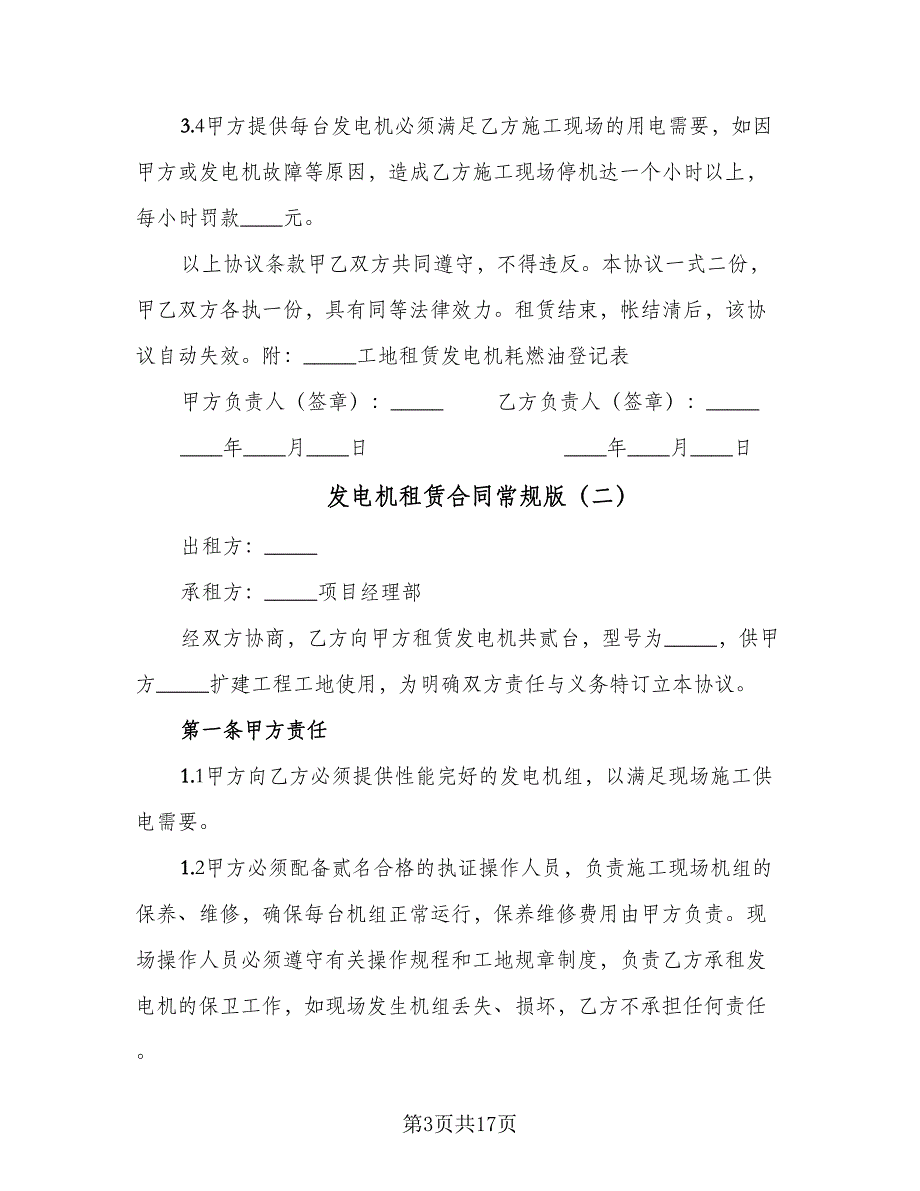 3.4甲方提供每台发电机必须满足乙方施工现场的用电需要，如因
甲方或发电机故障等原因，造成乙方施工现场停机达一个小时以上，
每小时罚款____元。
以上协议条款甲乙双方共同遵守，不得违反。本协议一式二份，
甲乙双方各执一份，具有同等法律效力。租赁结束，帐结清后，该协
议自动失效。附：_____工地租赁发电机耗燃油登记表
甲方负责人（签章）：_____ 乙方负责人（签章）：_____
____年____月____日 ____年____月____日
发电机租赁合同常规版（二）
出租方：_____
承租方：_____项目经理部
经双方协商，乙方向甲方租赁发电机共贰台，型号为_____，供甲
方_____扩建工程工地使用，为明确双方责任与义务特订立本协议。
第一条甲方责任
1.1甲方向乙方必须提供性能完好的发电机组，以满足现场施工供
电需要。
1.2甲方必须配备贰名合格的执证操作人员，负责施工现场机组的
保养、维修，确保每台机组正常运行，保养维修费用由甲方负责。现
场操作人员必须遵守有关操作规程和工地规章制度，负责乙方承租发
电机的保卫工作，如现场发生机组丢失、损坏，乙方不承担任何责任
。
第3页共17页